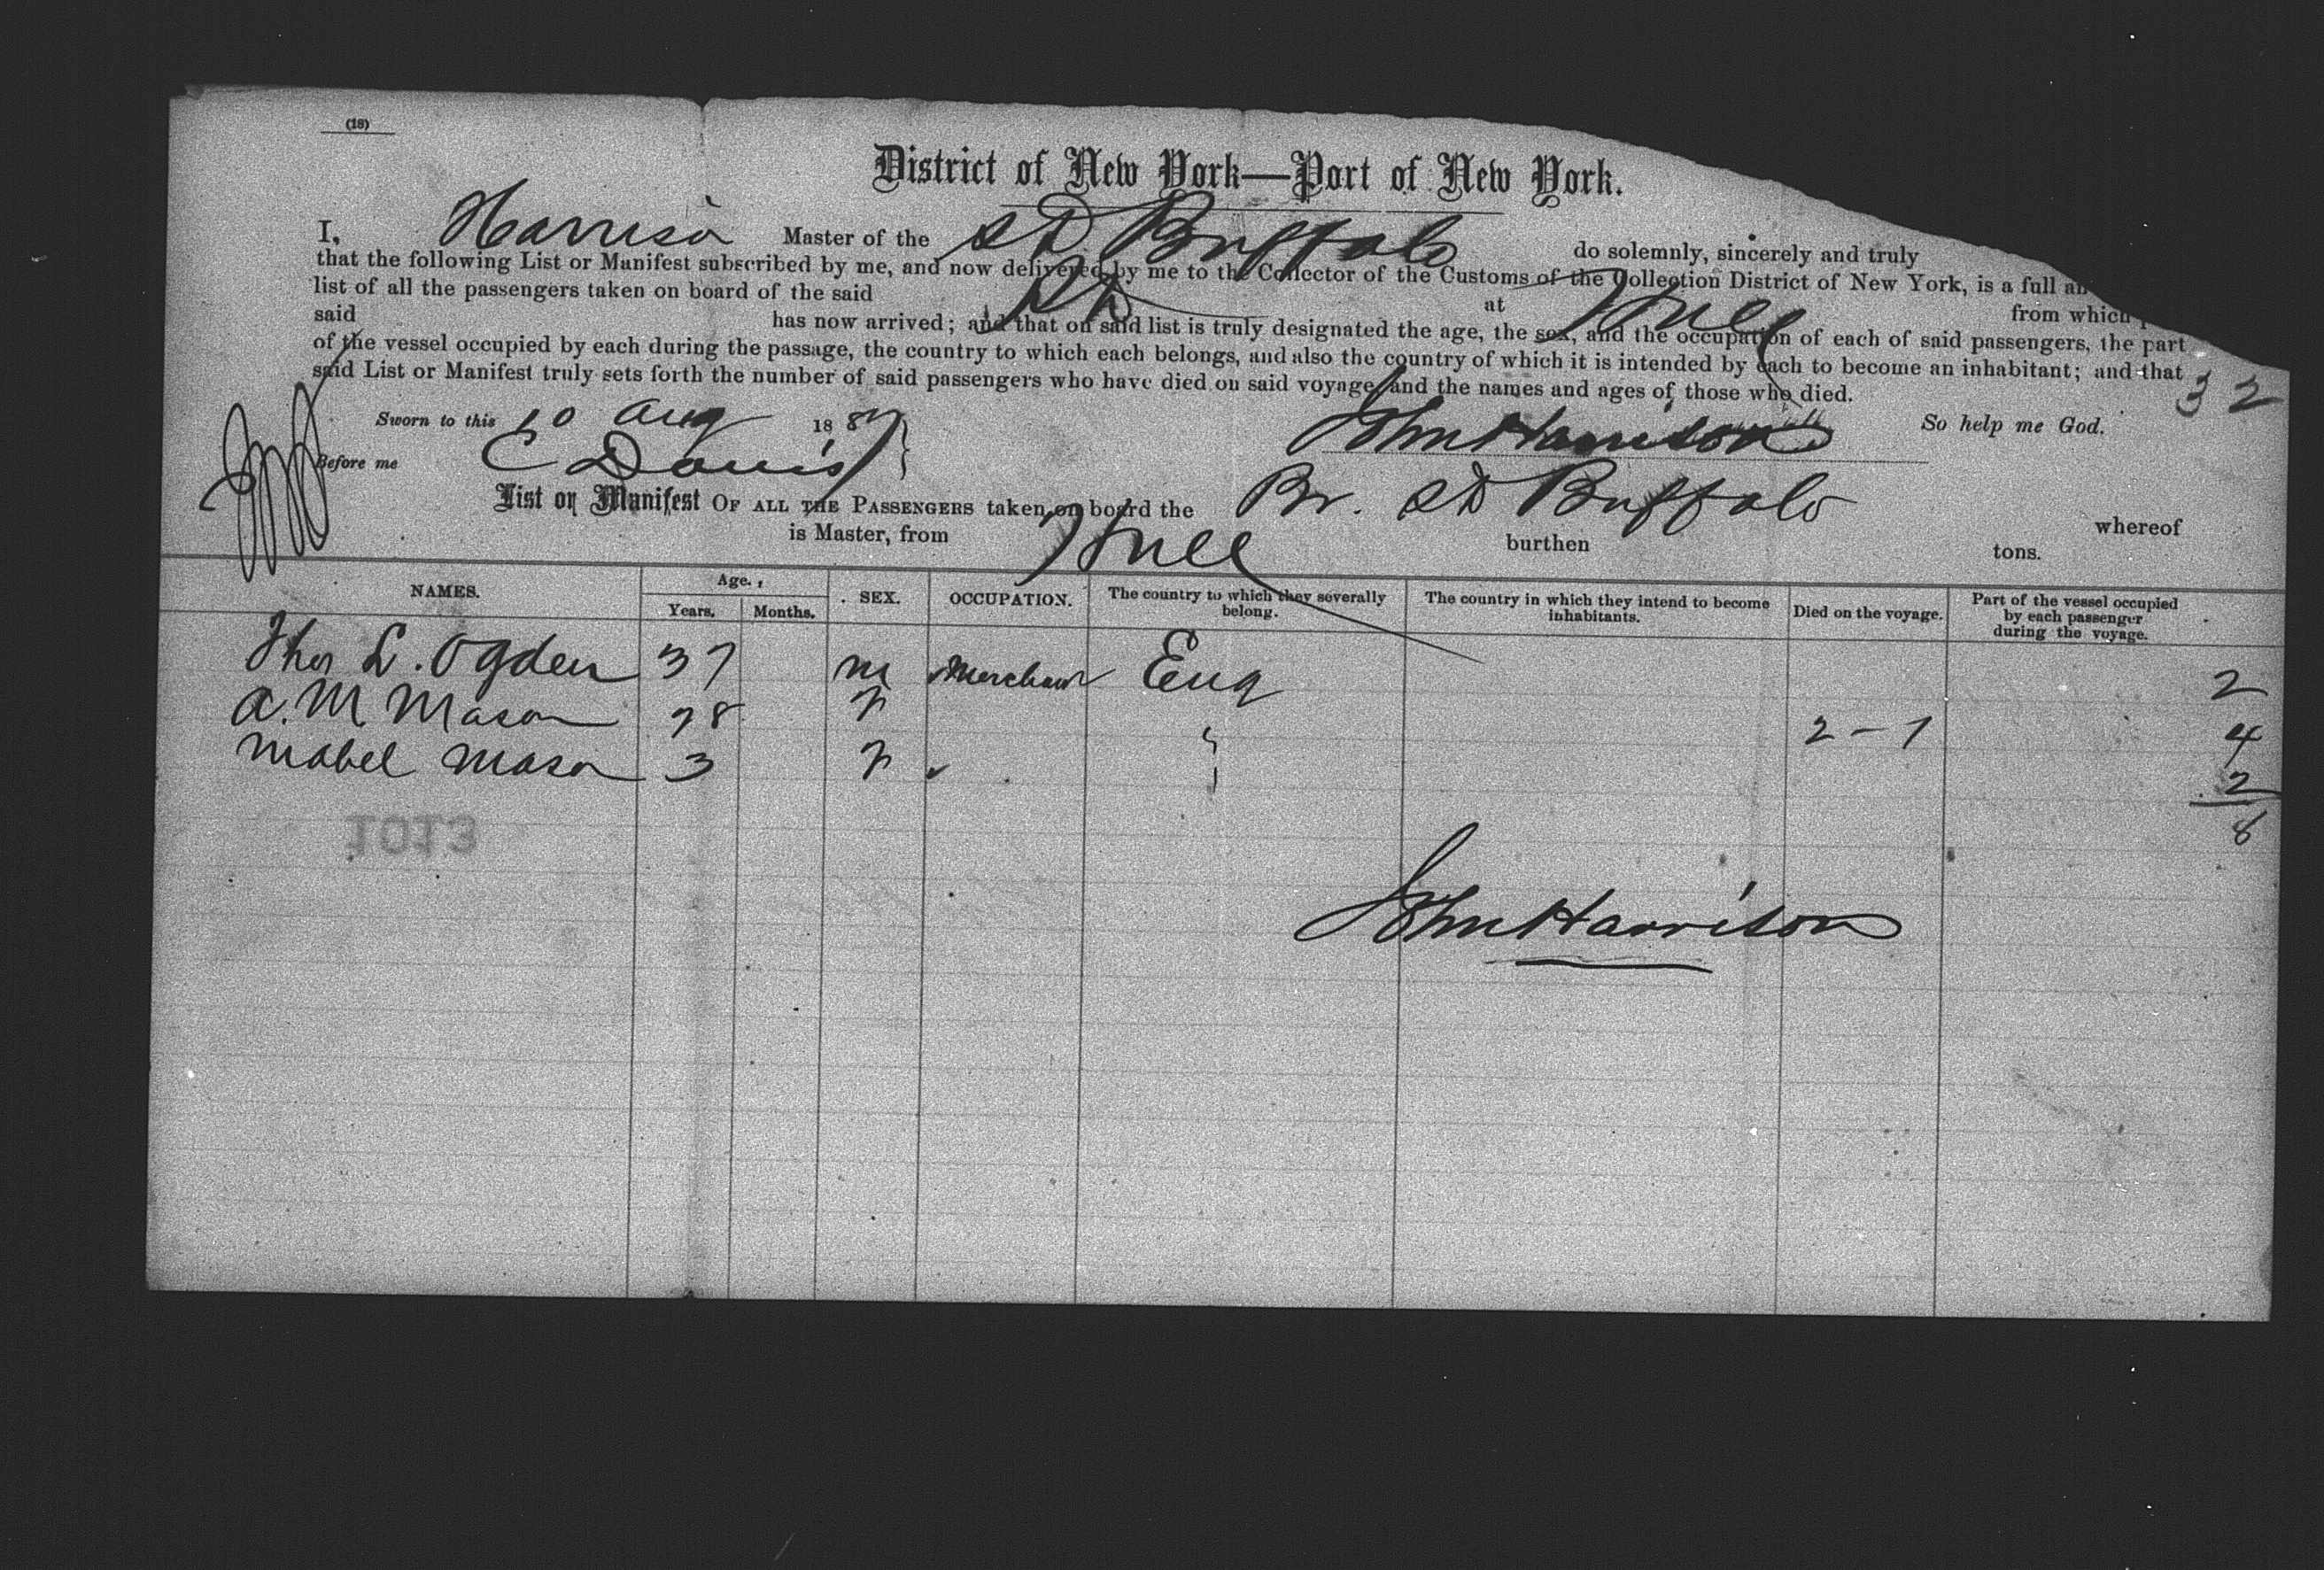 (18)
District of New York—Port of New York.
I, Harrison Master of the SS Buffalo do solemnly, sincerely and truly
that the following List or Manifest subscribed by me, and now delivered by me to the Collector of the Customs of the Collection District of New York, is a full an
list of all the passengers taken on board of the said SS at Hull from which
said has now arrived; and that on said list is truly designated the age, the sex, and the occupation of each of said passengers, the part
of the vessel occupied by each during the passage, the country to which each belongs, and also the country of which it is intended by each to become an inhabitant; and that
said List or Manifest truly sets forth the number of said passengers who have died on said voyage, and the names and ages of those who died.
32
Sworn to this 10 Aug 188 John Harrison So help me God.
Before me C Davis
List or Manifest OF ALL THE PASSENGERS taken on board the Br. SS Buffalo whereof
is Master, from Hull burthen tons.
NAMES. Age. Years. Months. SEX. OCCUPATION. The country to which they severally belong. The country in which they intend to become inhabitants. Died on the voyage. Part of the vessel occupied by each passenger during the voyage.
Thos L. Ogden 37 M Merchant Eng 2
A. M. Mason 28 F " 2-1 4
Mabel Mason 3 F " 2
8
1013
John Harrison